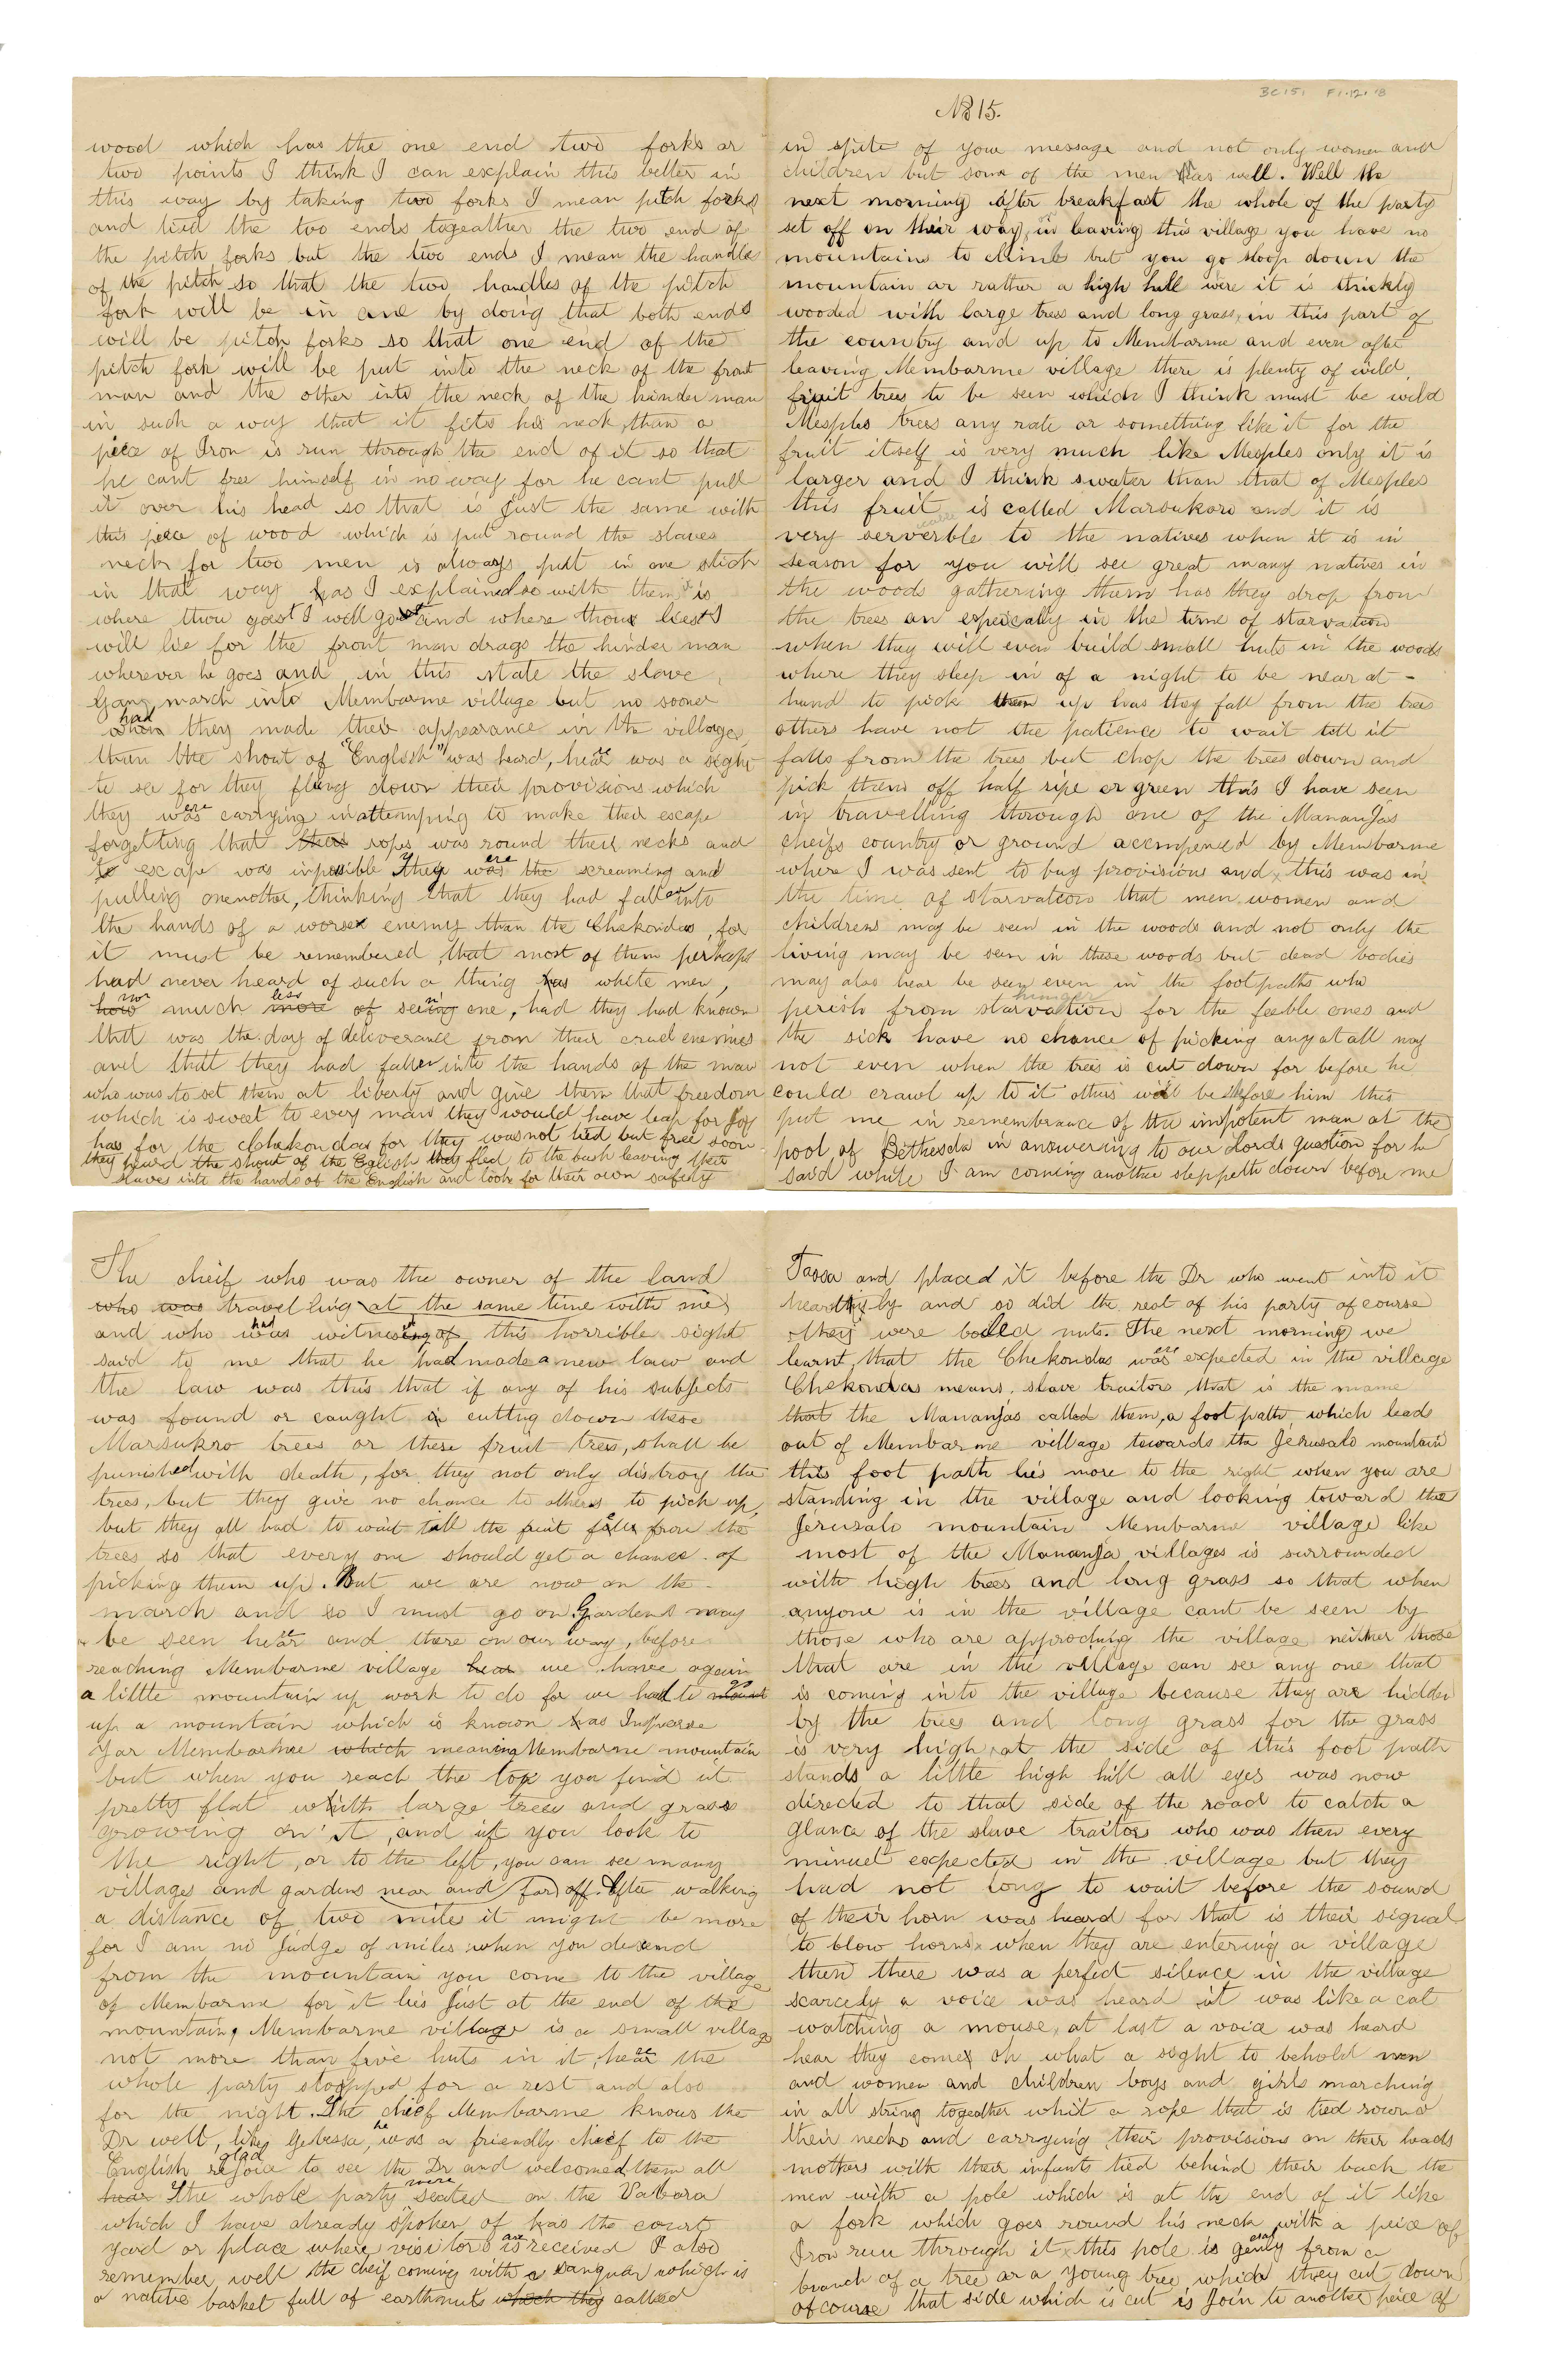 BC151 F1.12.18
No 15.
in spite of your message and not only women and
children but some of the men as well. Well the
next morning after breakfast the whole of the party
set off on their way, in leaving this village you have no
mountains to climb but you go sloop down the
mountain or rather a high hill were it is thickly
wooded with large trees and long grass, in this part of
the country and up to Membarme and even after
leaving Membarme village there is plenty of wild
fruit trees to be seen which I think must be wild
Mesples trees any rate or something like it for the
fruit itself is very much like Mesples only it is
larger and I think sweater than that of Mesples
this fruit is called Marsukoro and it is
very serverble to the natives when it is in
season for you will see great many natives in
the woods gathering them has they drop from
the trees an especally in the time of starvation
when they will even build small huts in the woods
where they sleep in of a night to be near at -
hand to pick them up has they fall from the trees
others have not the patience to wait till it
falls from the trees but chop the trees down and
pick them off half ripe or green this I have seen
in travelling through one of the Mananjas
cheifs country or ground accompened by Membarme
where I was sent to buy provisions and this was in
the time of starvation that men women and
childrens may be seen in the woods and not only the
living may be seen in these woods but dead bodies
may also hear be seen even in the footpaths who
perish from starvation hunger for the feeble ones and
the sick have no chance of picking any at all nay
not even when the trees is cut down for before he
could crawl up to it others will be before him this
put me in remembrance of the impotent man at the
pool of Bethesda in answering to our Lords question for he
said while I am coming another steppeth down before me
The cheif who was the owner of the land
who was travelling at the same time with me
and who had witnessing of this horrible sight
said to me that he had made a new law and
the law was this that if any of his subjects
was found or caught in cutting down these
Marsukro trees or these fruit trees, shall be
punished with death, for they not only distroy the
trees, but they give no chance to others to pick up,
but they all had to wait till the fruit falls from the
trees so that every one should get a chance of
picking them up. But we are now on the
march and so I must go on Gardens may
be seen here and there on our way, before
reaching Membarme village hear we have again
a little mountain up work to do for we had to go mount
up a mountain which is known as Inpearse
Yar Membarme which meaning Membarme mountain
but when you reach the top you find it
pretty flat with large trees and grass
growing on it, and if you look to
the right, or to the left, you can see many
villages and gardens near and far off. After walking
a distance of two miles it might be more
for I am no Judge of miles when you desend
from the mountain you come to the village
of Membarme for it lies Just at the end of the
mountain, Membarme village is a small village
not more than five huts in it, here the
whole party stopped for a rest and also
for the night. The chief Membarme knows the
Dr well, like Gebessa, he was a friendly chief to the
English rejoice glad to see the Dr and welcomed them all
hear The whole party were seated on the Vabara
which I have already spoken of as the court
yard or place where visitors are received I also
remember well the cheif coming with a sanguar which is
a native basket full of earthnuts which they called
Tassa and placed it before the Dr who went into it
heartily and so did the rest of his party of course
they were boiled nuts. The next morning we
learnt that the Chekondas were expected in the village
Chekondas means. slave traitors that is the name
that the Mananjas called them, a foot path which leads
out of Membarme village towards the Jerusalo mountain
this foot path lies more to the right when you are
standing in the village and looking toward the
Jerusalo mountain Membarme village like
most of the Mananja villages is surrounded
with high trees and long grass so that when
anyone is in the village cant be seen by
those who are approching the village neither those
that are in the village can see any one that
is coming into the village because they are hidden
by the trees and long grass for the grass
is very high, at the side of this foot path
stands a little high hill all eyes was now
directed to that side of the road to catch a
glance of the slave traitors who was then every
minuet expected in the village but they
had not long to wait before the sound
of their horn was heard for that is their signal
to blow horns when they are entering a village
then there was a perfect silence in the village
scarcely a voice was heard it was like a cat
watching a mouse, at last a voice was heard
hear they come oh what a sight to behold men
and women and children boys and girls marching
in all string togeather whit a rope that is tied round
their necks and carrying their provisions on their heads
mothers with their infants tied behind their back the
men with a pole which is at the end of it like
a fork which goes round his neck with a peice of
Iron run through it this pole is from a
branch of a tree or a young tree which they cut down
of course that side which is cut is Join to another peice of
wood which has the one end two forks or
two points I think I can explain this better in
this way by taking two forks I mean pitch forks
and tied the two ends togeather the two end of
the pitch forks but the two ends I mean the handles
of the pitch so that the two handles of the pitch
fork will be in one by doing that both ends
will be pitch forks so that one end of the
pitch fork will be put into the neck of the front
man and the other into the neck of the hinder man
in such a way that it fits his neck, than a
piece of Iron is run through the end of it so that
he cant free himself in no way for he cant pull
it over his head so that is Just the same with
this piece of wood which is put round the slaves
neck for two men is always put in one stick
in that way as I explained so with them is
where thou goest I will go and where thou liest I
will lie for the front man drags the hinder man
wherever he goes and in this state the slave
Gang march into Membarme village but no sooner
had when they made their appearance in the village
than the shout of "English" was heard, here was a sight
to see for they flung down their provisions which
they were carrying in attemping to make their escape
forgetting that their ropes was round their necks and
to escape was inpossible They were the screaming and
pulling onenother, thinking that they had fallen into
the hands of a worse enemy than the Chekondas, for
it must be remembered, that most of them perhaps
had never heard of such a thing as white men,
how nor much more less of seeing one, had they had known
that was the day of deliverance from their cruel enemies
and that they had fallen into the hands of the man
who was to set them at liberty and give them that freedom
which is sweet to every man they would have leap for Joy
has for the Chekondas for they was not tied but free soon
they heard the shout of the English they fled to the bush leaving their
slaves into the hands of the English and look for their own safety